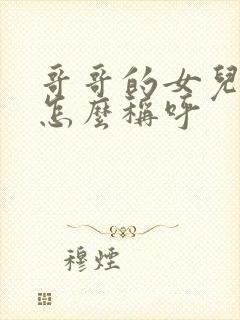 哥哥的女兒
怎麼稱呼
穆煙